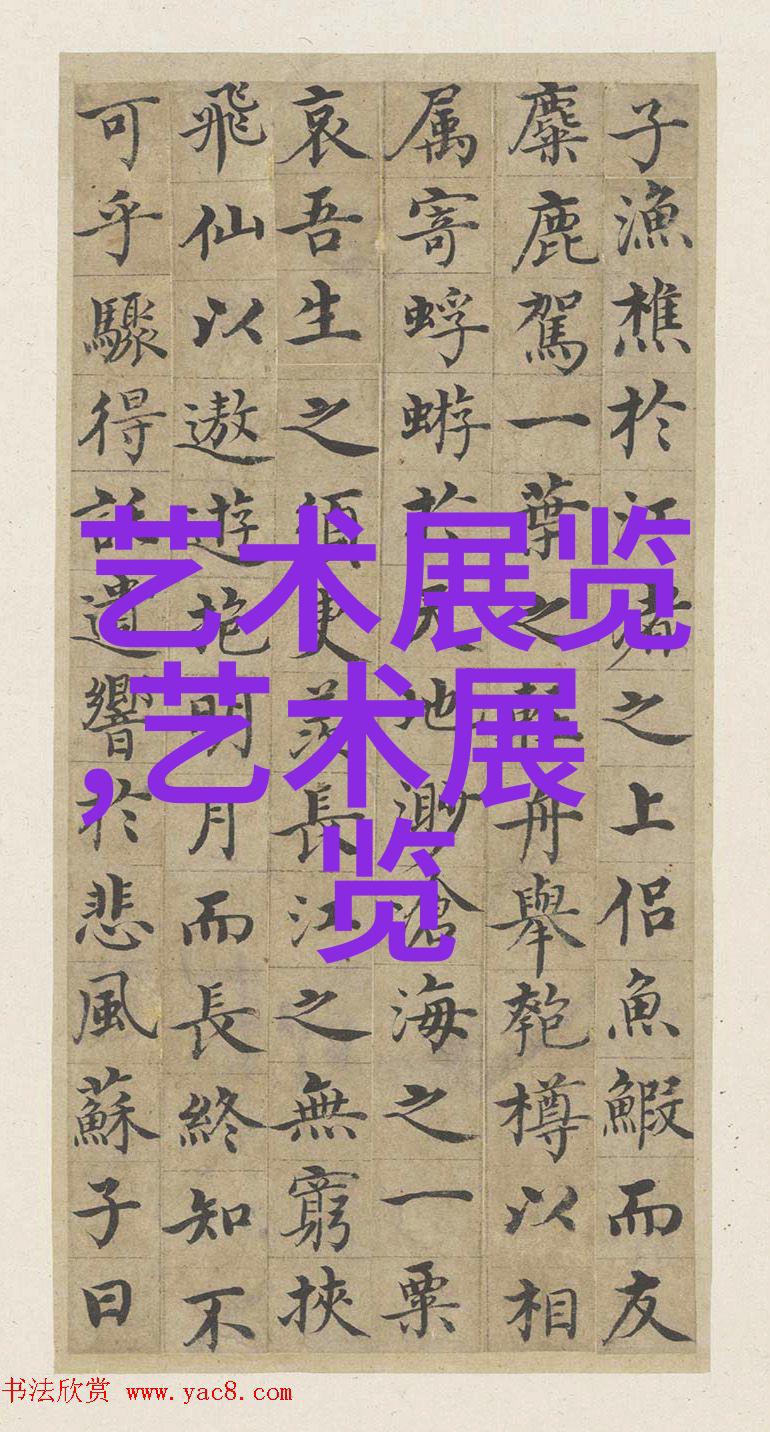 子漁樵於江渚之上侶魚鰕而友
麋鹿駕一葉之輕舟舉匏樽以相
属寄蜉蝣於天地渺滄海之一粟
哀吾生之須臾羨長江之無窮挾
飛仙以遨遊抱明月而長終知不
可乎驟得託遺響於悲風蘇子曰
艺术展览
,艺术展
览
书法欣赏 www.yac8.com